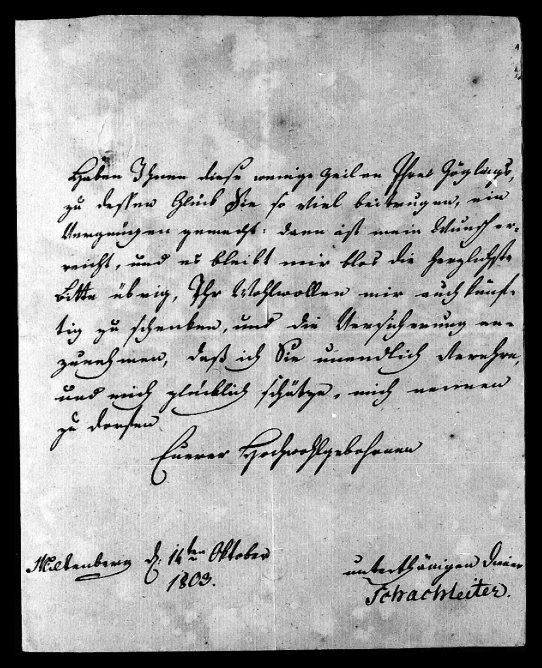 Haben Ihnen diese wenige Zeilen Ihres Zöglings,
zu dessen Glück Sie so viel beitrugen, ein
Vergnügen gemacht: dann ist mein Wunsch er-
reicht, und es bleibt mir blos die herzlichste
Bitte übrig, Ihr Wohlwollen mir auch künf-
tig zu schenken, und die Versicherung an-
zunehmen, daß ich Sie unendlich Verehre,
und mich glücklich schätze, mich nennen
zu dorfen
Euerer Hochwohlgebohrnen
Miltenberg d. 14ten Oktober
1803.
unterthänigen Diener
Schachleiter.